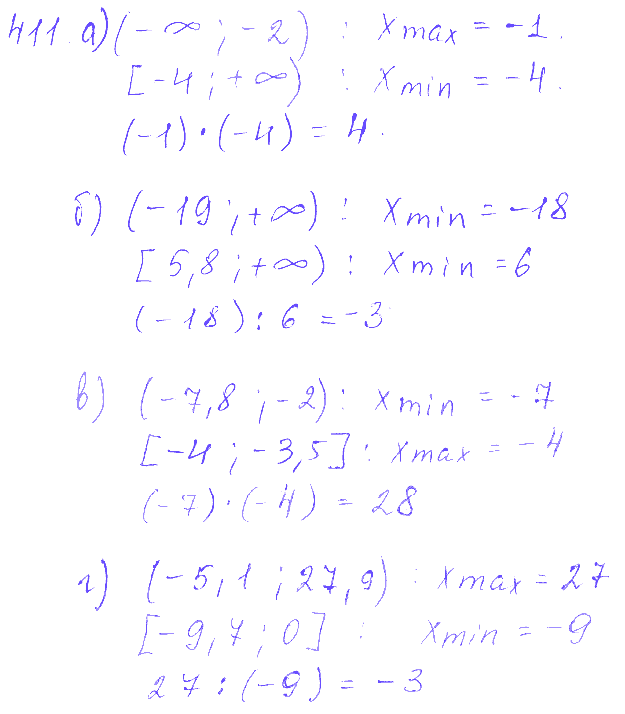 411. а) (-∞ ; -2) : x max = -1.
[-4 ; +∞) : x min = -4.
(-1) · (-4) = 4.
б) (-19 ; +∞) : x min = -18
[5,8 ; +∞) : x min = 6
(-18) : 6 = -3
в) (-7,8 ; -2) : x min = -7
[-4 ; -3,5] : x max = -4
(-7) · (-4) = 28
г) (-5,1 ; 27,9) : x max = 27
[-9,7 ; 0] : x min = -9
27 : (-9) = -3